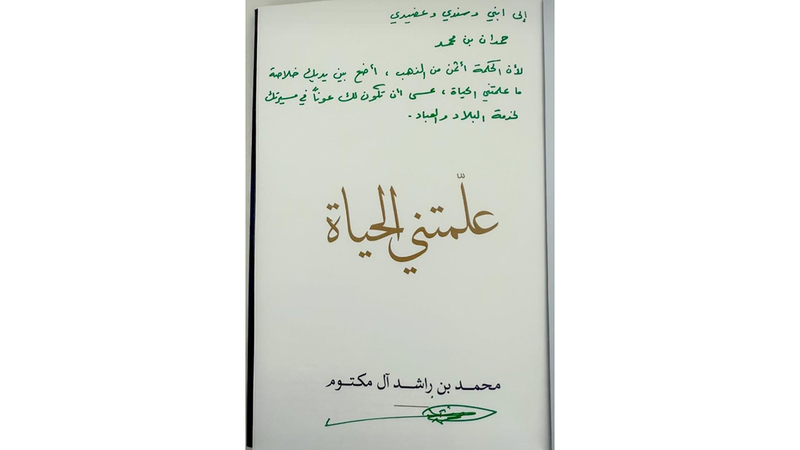 إلى ابني وسندي وعضيدي
حمدان بن محمد
لأن الحكمة أثمن من الذهب ، أضع بين يديك خلاصة
ما علمتني الحياة ، عسى أن تكون لك عوناً في مسيرتك
لخدمة البلاد والعباد .
علّمتني الحياة
محمد بن راشد آل مكتوم